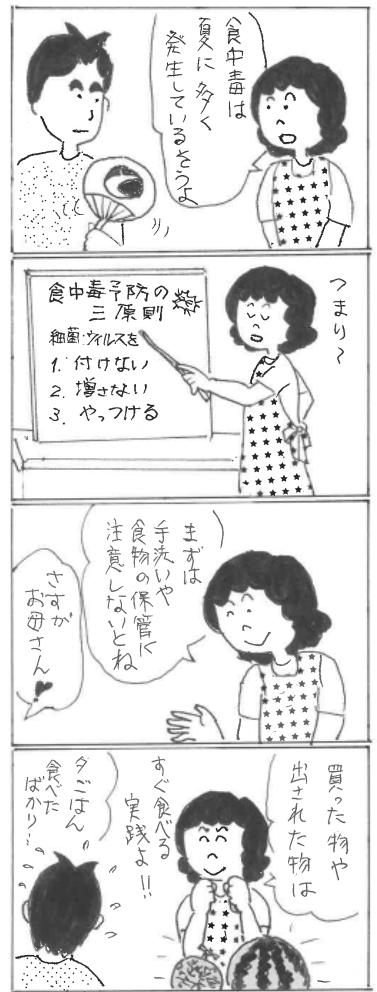 食中毒は
夏に多く
発生しているそうよ
つまり～
食中毒予防の
三原則
細菌・ウィルスを
1. 付けない
2. 増さない
3. やっつける
まずは
手洗いや
食物の保管に
注意しないとね
さすが
お母さん
買った物や
出された物は
すぐ食べる
実践よ!!
夕ごはん
食べた
ばかり…